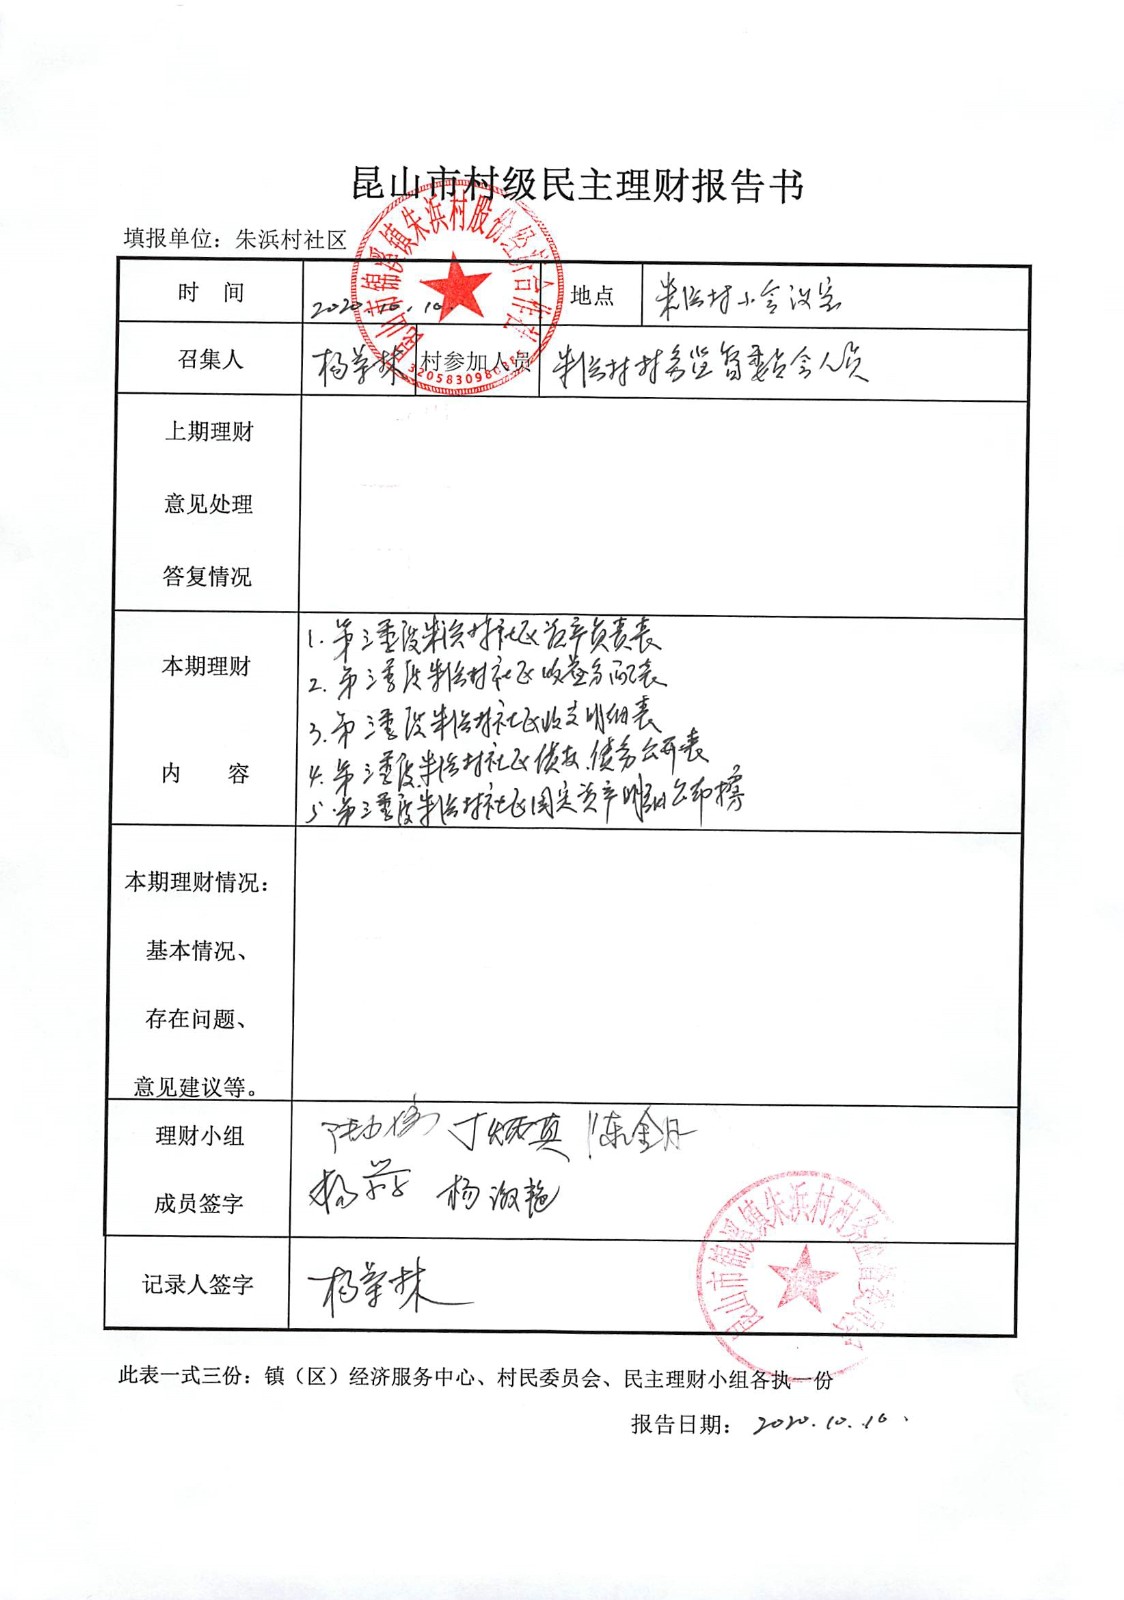 昆山市村级民主理财报告书
填报单位：朱浜村社区
昆山市锦溪镇朱浜村股份经济合作社
时 间 2020.10.10. 地点 朱浜村小会议室
召集人 杨 林 村参加人员 朱浜村村务监督委员会人员
上期理财
意见处理
答复情况
本期理财
内 容
1. 第三季度朱浜村社区资产负责表
2. 第三季度朱浜村社区收益分配表
3. 第三季度朱浜村社区收支明细表
4. 第三季度朱浜村社区债权、债务公开表
5. 第三季度朱浜村社区固定资产明细公布榜
本期理财情况：
基本情况、
存在问题、
意见建议等。
理财小组
成员签字
丁炳真 陈金月
杨 杨淑艳
昆山市锦溪镇朱浜村村务监督委员会
记录人签字 杨 林
此表一式三份：镇（区）经济服务中心、村民委员会、民主理财小组各执一份
报告日期： 2020.10.10.